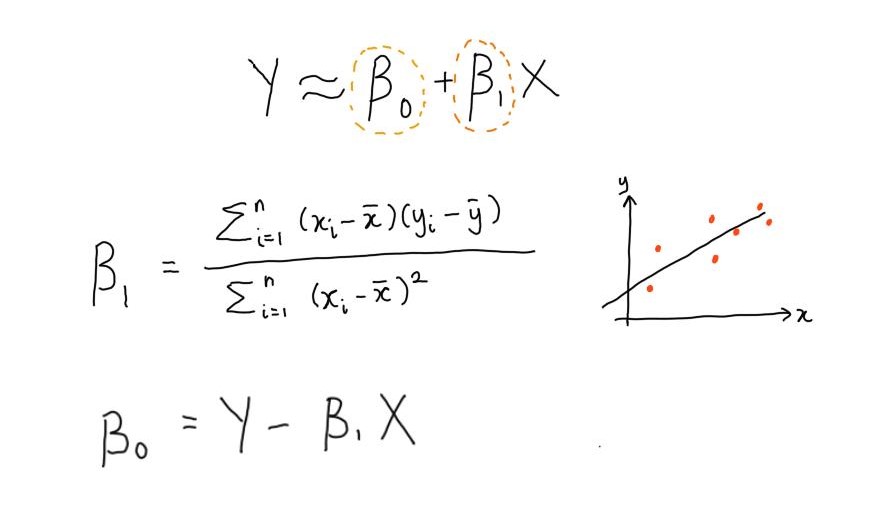 Y ≈ β₀ + β₁ X
β₁ = ∑ⁿᵢ₌₁ (xᵢ - x̄)(yᵢ - ȳ) / ∑ⁿᵢ₌₁ (xᵢ - x̄)²
y
x
β₀ = Y - β₁ X